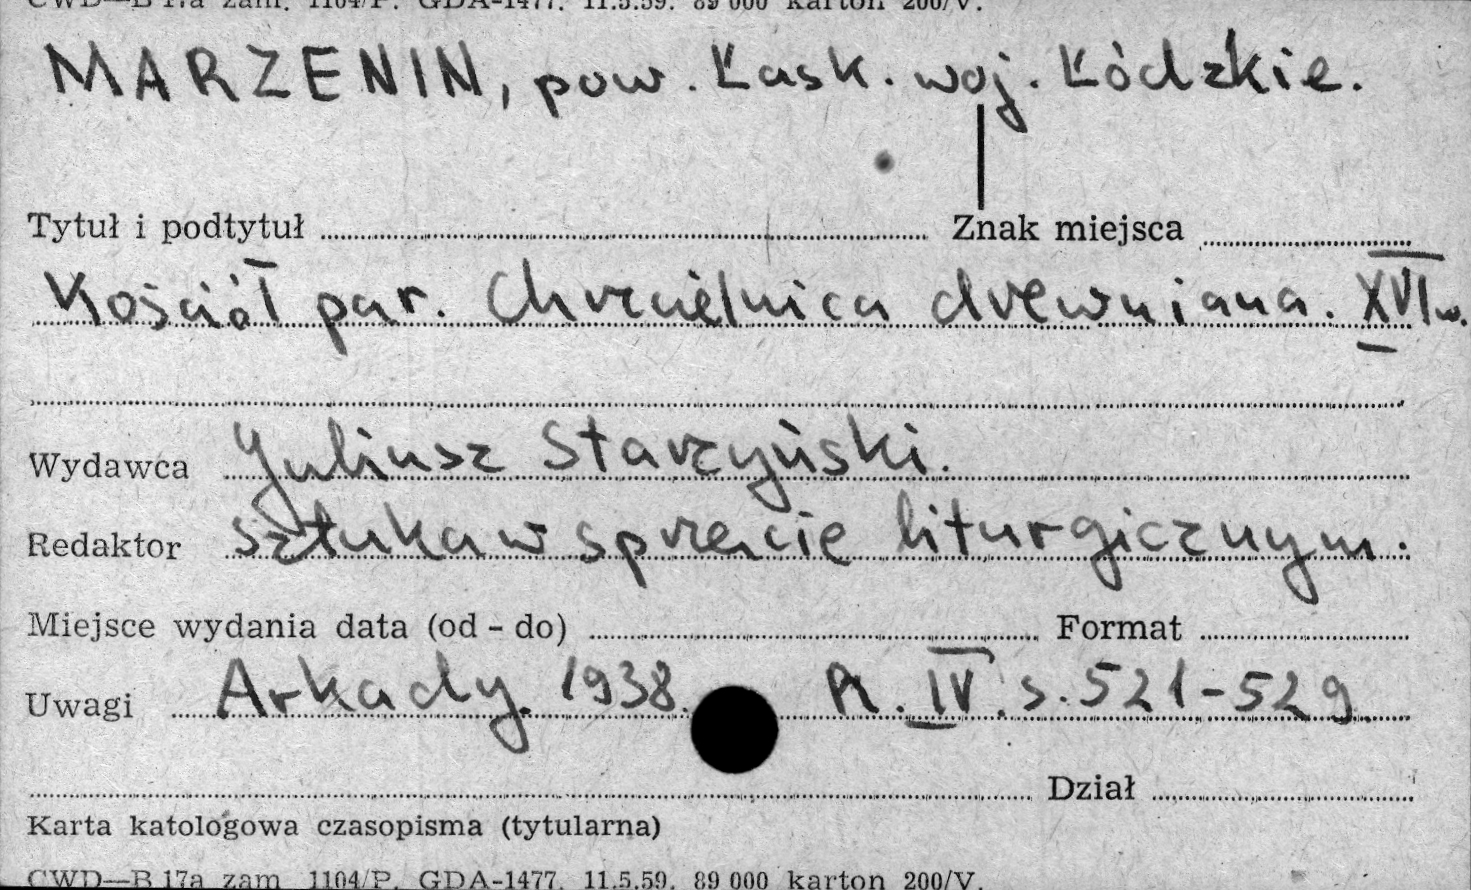 CWD—B 17a zam. 1104/P. GDA-1477. 11.5.59. 89 000 karton 200/V.
MARZENIN, pow. Łask. woj. Łódzkie.
Tytuł i podtytuł Znak miejsca
Kościół par. Chrzcielnica drewniana. XVI w.
Wydawca Juliusz Starzyński.
Redaktor Sztuka w sprzęcie liturgicznym.
Miejsce wydania data (od - do) Format
Uwagi Arkady. 1938. R. IV. s. 521-529
Dział
Karta katologowa czasopisma (tytularna)
CWD—B 17a zam. 1104/P. GDA-1477. 11.5.59. 89 000 karton 200/V.